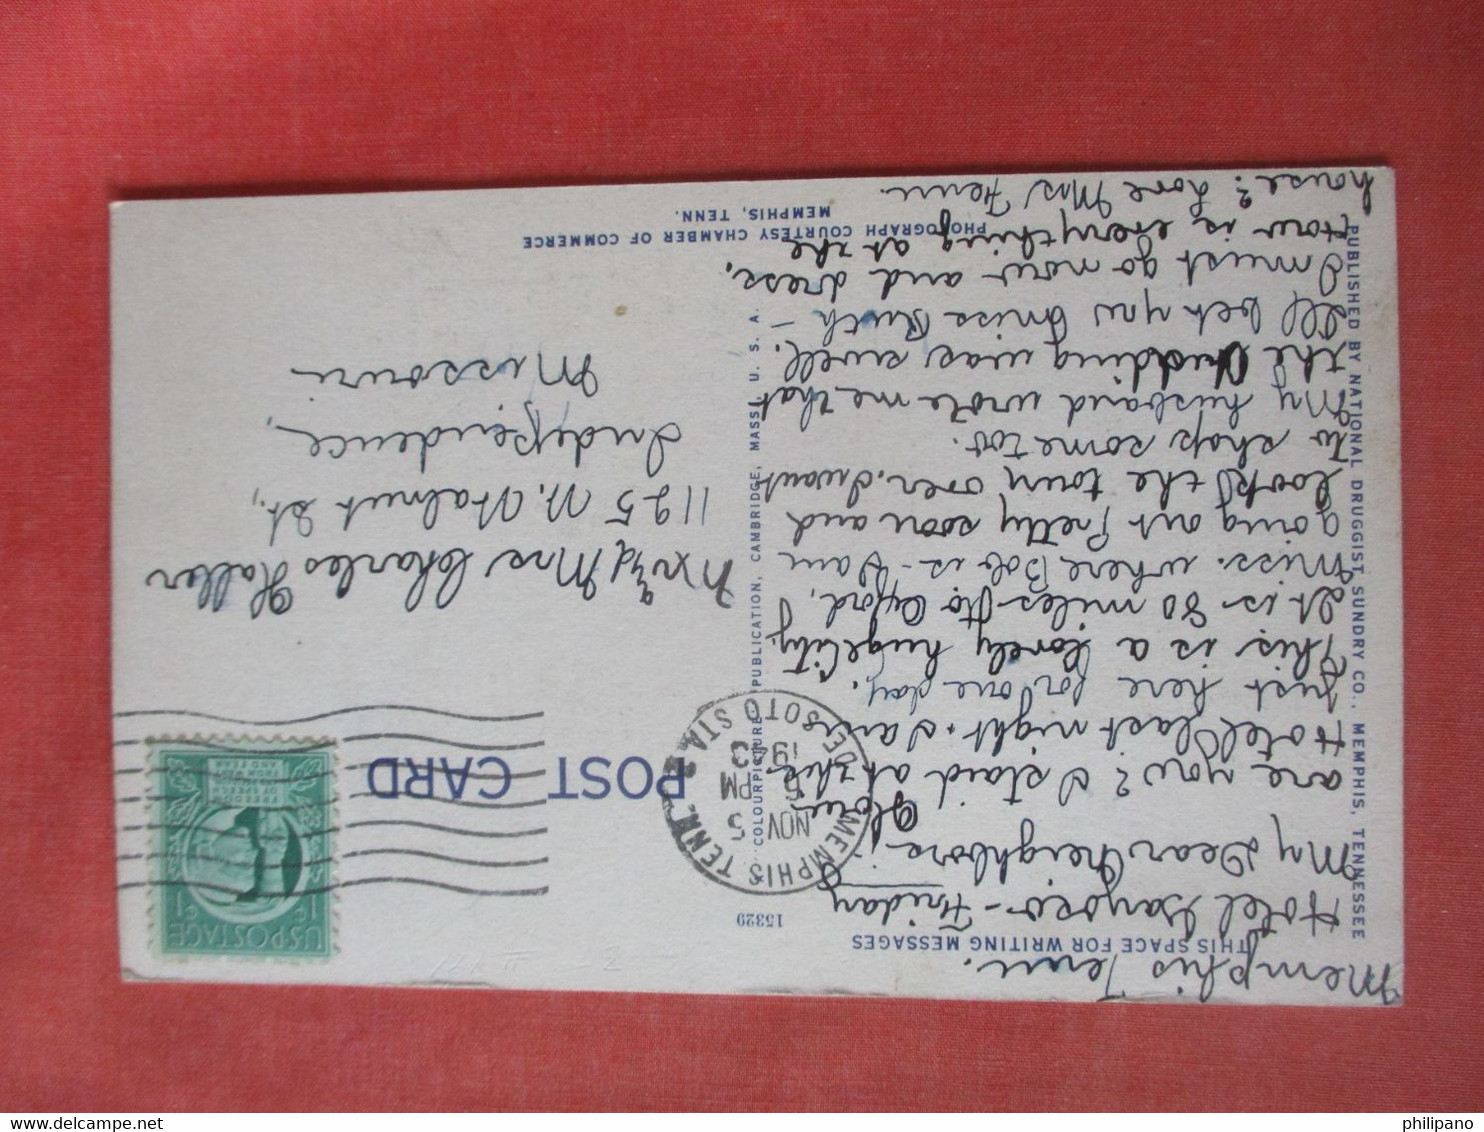 Memphis Tenn.
THIS SPACE FOR WRITING MESSAGES
Hotel Gayoso - Friday
My Dear Neighbors; How
are you? I staid at the
Hotel last night. I am
just here for one day.
This is a lovely huge City.
It is 80 miles to Oxford,
Miss. where Bob is - I am
going out pretty soon and
look the town over. I want
to shop some too.
My husband wrote me that
the Pudding was swell.
I'll bet you Miss Ruth -
I must go now and dress.
How is everything at the
house? Love Mrs Fenn.
PUBLISHED BY NATIONAL DRUGGIST SUNDRY CO., MEMPHIS, TENNESSEE
15329
COLOURPICTURE PUBLICATION, CAMBRIDGE, MASS., U. S. A.
MEMPHIS TENN.
DE SOTO STA.
NOV 5
5 PM
1943
POST CARD
U.S. POSTAGE
1¢ 1¢
FREEDOM
OF SPEECH
AND RELIGION
FROM WANT
AND FEAR
Mr. and Mrs Charles Haller
1125 N. Walnut St.,
Independence,
Missouri
PHOTOGRAPH COURTESY CHAMBER OF COMMERCE
MEMPHIS, TENN.
philipano